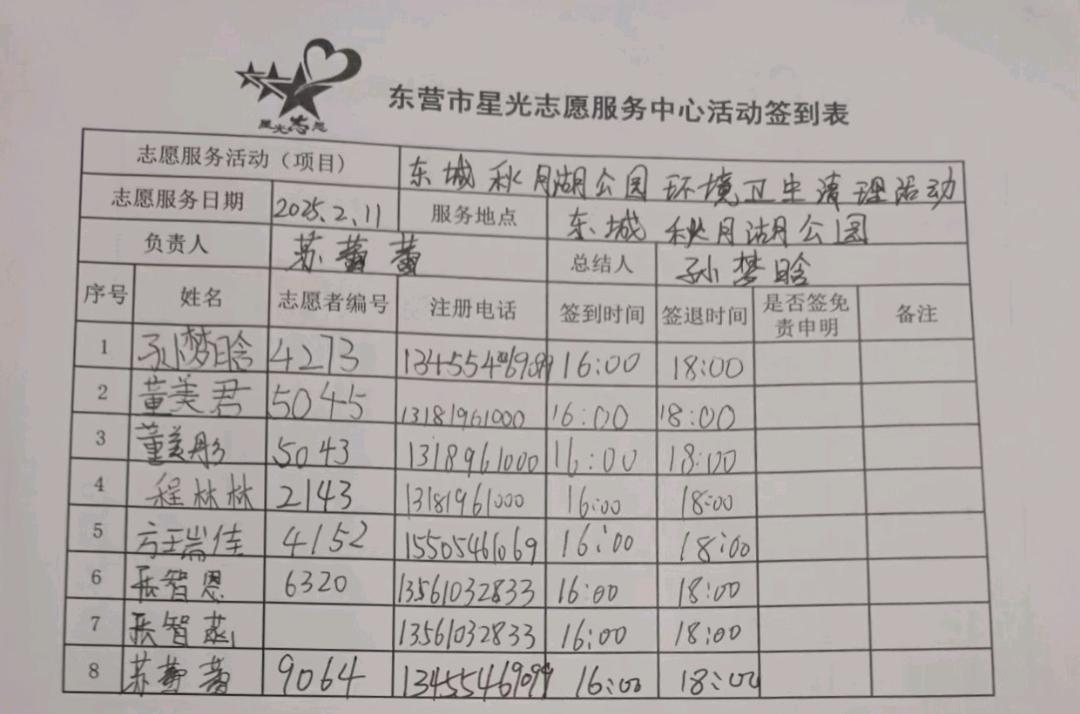 星光志愿
东营市星光志愿服务中心活动签到表
志愿服务活动（项目） 东城秋月湖公园环境卫生清理活动
志愿服务日期 2025.2.11 服务地点 东城秋月湖公园
负责人 苏蕾蕾 总结人 孙梦晗
序号 姓名 志愿者编号 注册电话 签到时间 签退时间 是否签免责申明 备注
1 孙梦晗 4273 16:00 18:00
2 董美君 5045 13181961000 16:00 18:00
3 董美彤 5043 13181961000 16:00 18:00
4 程林林 2143 13181961000 16:00 18:00
5 瑞佳 4152 15505461069 16:00 18:00
6 张智恩 6320 13561032833 16:00 18:00
7 张智 13561032833 16:00 18:00
8 苏蕾蕾 9064 13455469099 16:00 18:00